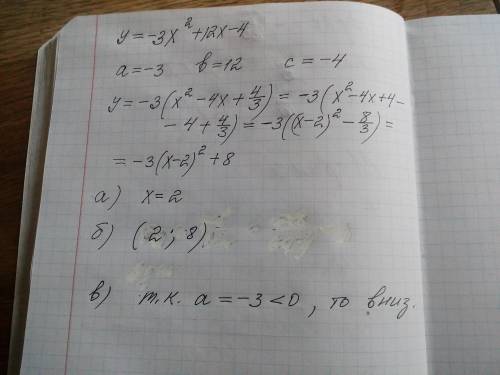 y=-3x²+12x-4
a=-3 в=12 c=-4
y=-3(x²-4x+4/3)=-3(x²-4x+4-
-4+4/3)=-3((x-2)²-8/3)=
=-3(x-2)²+8
а) x=2
б) (2; 8)
в) т.к. a=-3<0, то вниз.